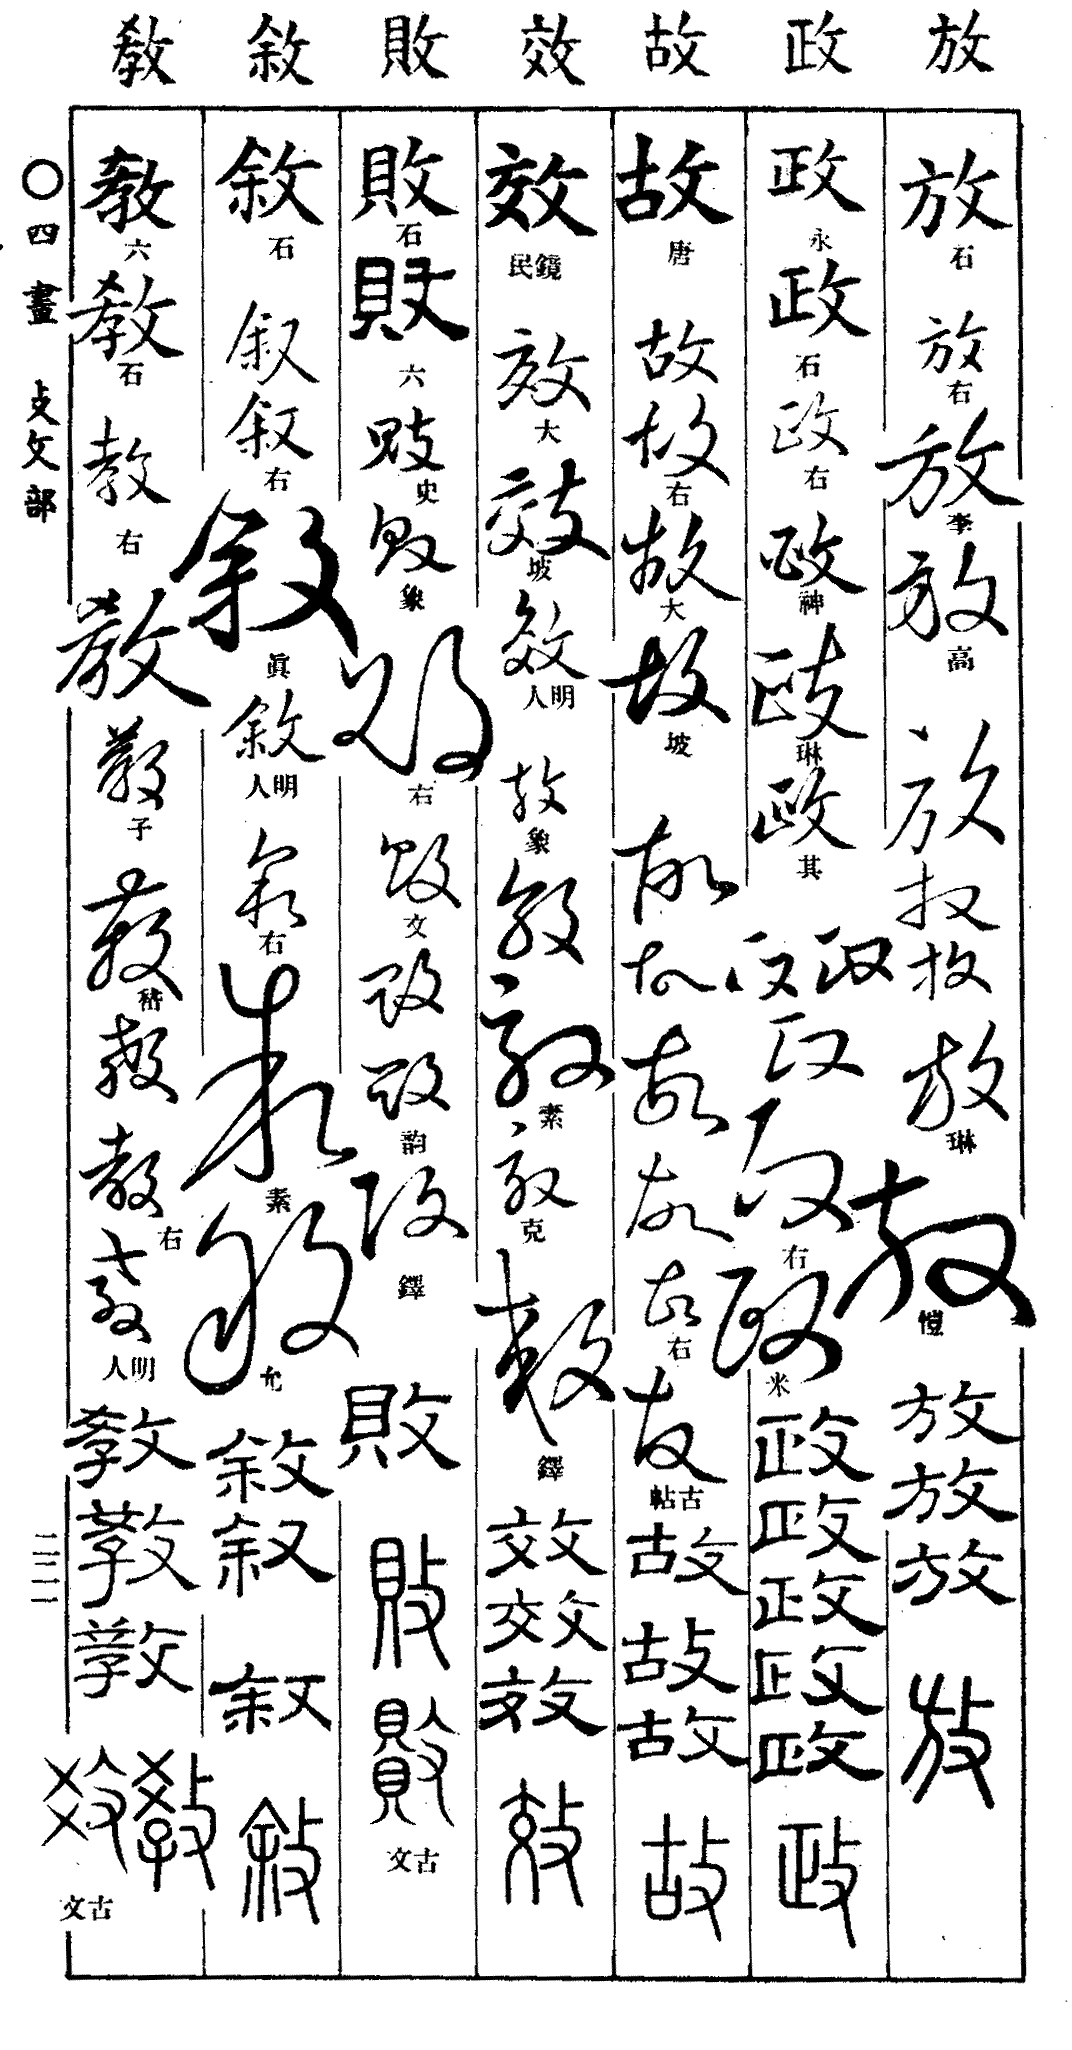 放 政 故 效 敗 敘 教
放 石 放 右 放 李 放 高 放 放 放 放 琳 放 愷 放 放 放 放
政 永 政 石 政 右 政 神 政 琳 政 其 政 政 政 政 右 政 米 政 政 政 政 政 政
故 唐 故 故 右 故 大 故 坡 故 故 故 故 故 右 故 古帖 故 故 故 故
效 鏡民 效 大 效 坡 效 明人 效 象 效 效 素 效 克 效 鐸 效 效 效 效
敗 石 敗 六 敗 史 敗 象 敗 右 敗 文 敗 敗 韵 敗 鐸 敗 敗 敗 古文
敘 石 敘 敘 右 敘 眞 敘 明人 敘 右 敘 素 敘 允 敘 敘 敘 敘
教 六 教 石 教 右 教 教 子 教 嵇 教 教 右 教 明人 教 教 教 教 教 古文
○四畫 攴攵部